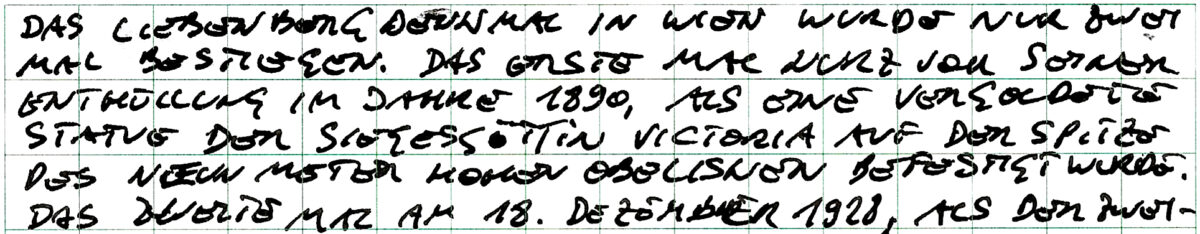 DAS LIEBENBERGDENKMAL IN WIEN WURDE NUR ZWEI
MAL BESTIEGEN. DAS ERSTE MAL KURZ VOR SEINER
ENTHÜLLUNG IM JAHRE 1890, ALS EINE VERGOLDETE
STATUE DER SIEGESGÖTTIN VICTORIA AUF DER SPITZE
DES NEUN METER HOHEN OBELISKEN BEFESTIGT WURDE.
DAS ZWEITE MAL AM 18. DEZEMBER 1928, ALS DER ZWEI-